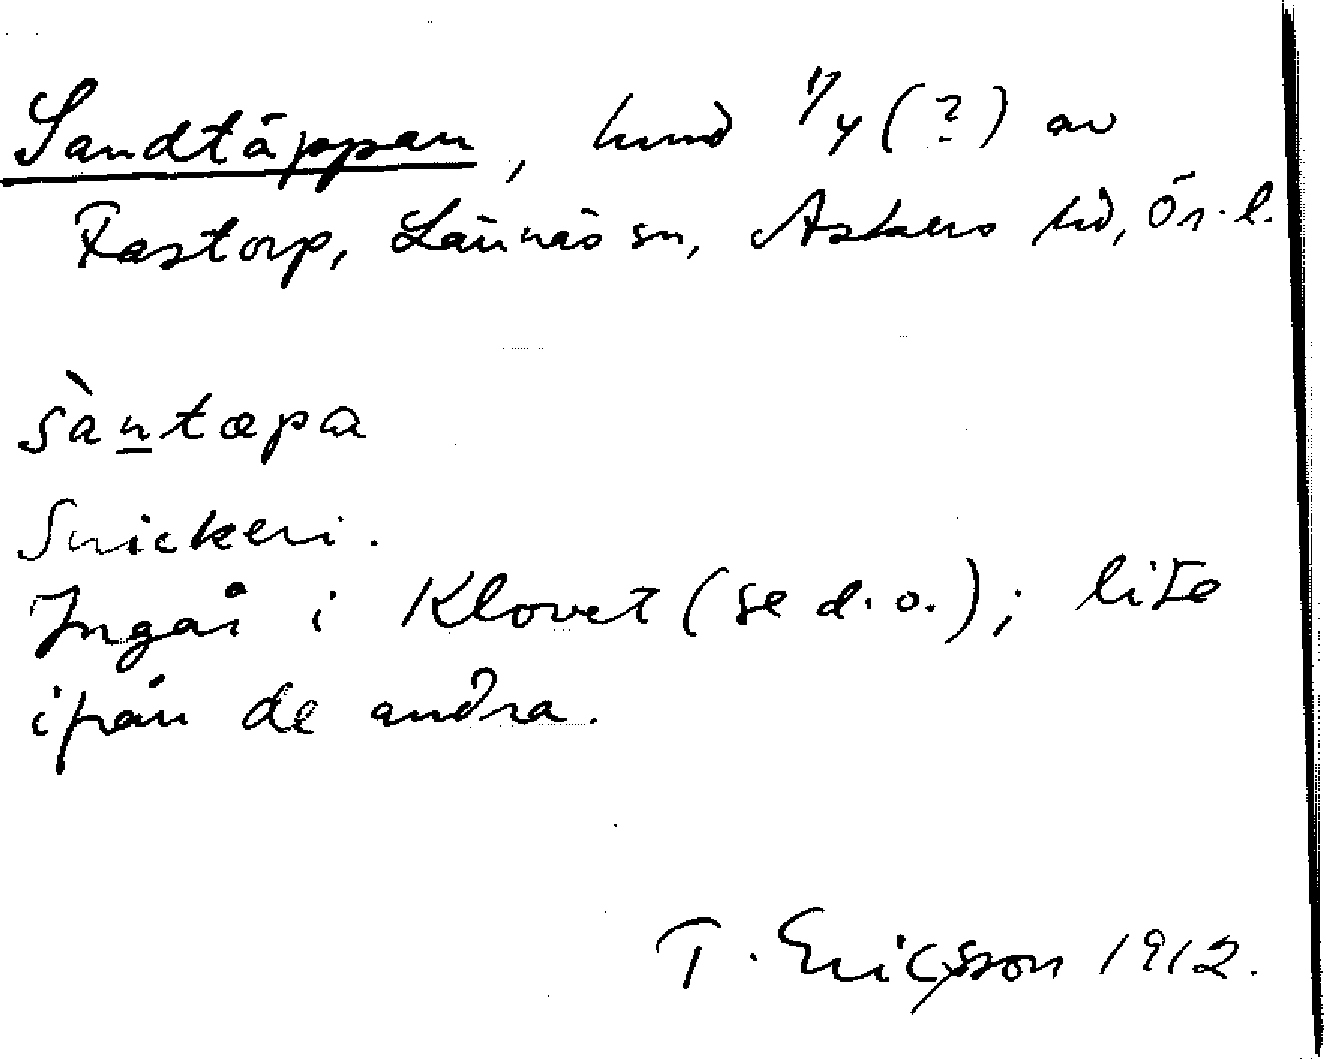 Sandtäppan, hmd 1/4 (?) av
Fastorp, Lännäs sn, Askers hd, Ör. l.
sàntæpa
Snickeri.
Ingår i Klovet (se d. o.); lite
ifrån de andra.
T. Ericsson 1912.